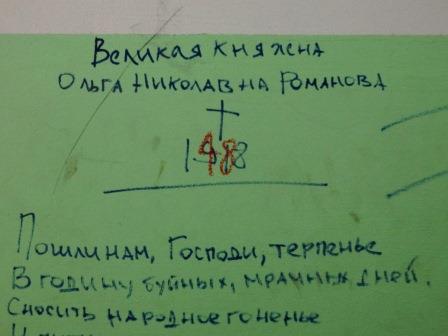 Великая княжна
Ольга Николавна Романова
Пошли нам, Господи, терпенье
В годину буйных, мрачных дней,
Сносить народное гоненье